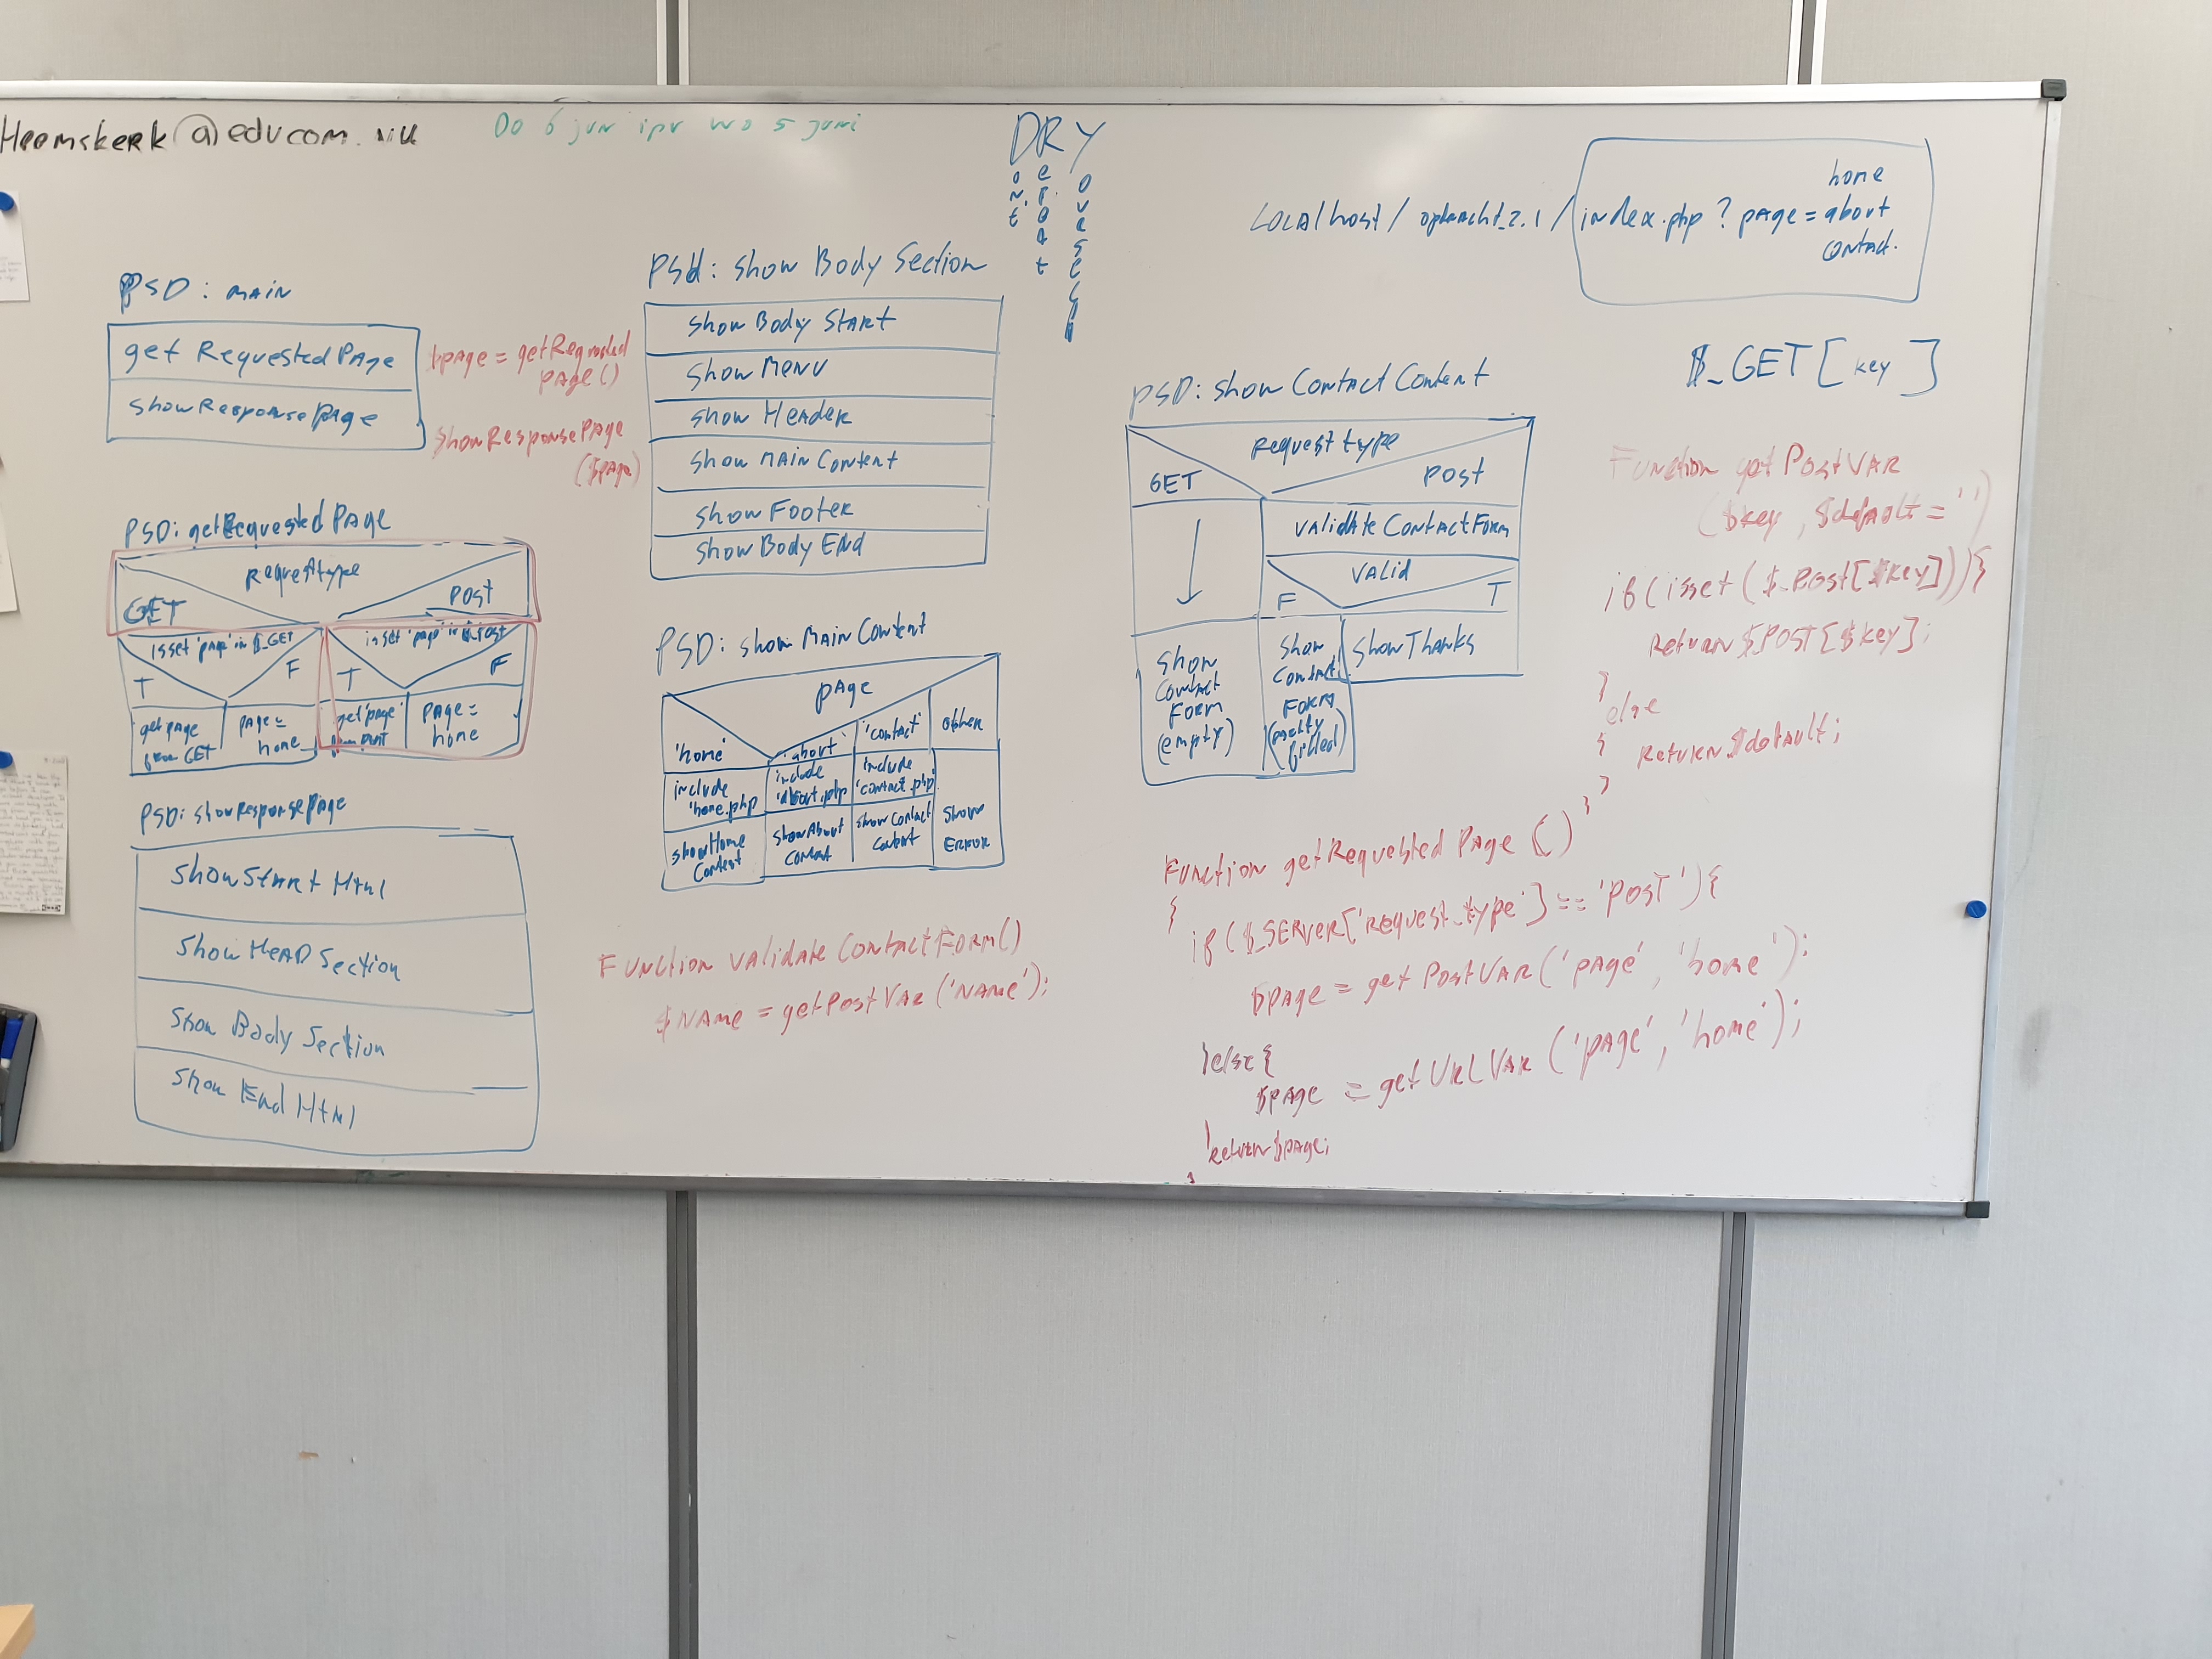 Heemskerk@edu.com.nu
Do 6 jun ipv wo 5 juni
DRY
Don't
Repeat
Yourself
Localhost / opdracht_2.1 / index.php ? page =
home
about
contact.
$_GET [ key ]
PSD: MAIN
get Requested Page
show Response Page
$page = getRequested
page()
showResponsePage
($page)
PSD: getRequested Page
Requesttype
GET
POST
isset 'page' in $_GET
isset 'page' in $_POST
T
F
T
F
get page
from GET
page =
home
get 'page'
from POST
page =
home
PSD: showResponsePage
showStart Html
show HeAD Section
show Body Section
show End Html
PSD: show Body Section
show Body Start
show Menu
show Header
show Main Content
show Footer
show Body End
PSD: show Main Content
page
'home'
'about'
'contact'
other
include
'home.php
include
'about.php
include
'contact.php'
showHome
Content
showAbout
Content
show Contact
Content
show
Error
Function validate ContactForm()
$Name = getPostVar ('Name');
PSD: show Contact Content
Request type
GET
POST
Validate ContactForm
Valid
F
T
show
contact
Form
(empty)
show
contact
Form
(partly
filled)
showThanks
Function getPostVar
($key, $default = '')
if (isset ($_Post[$key])){
Return $POST[$key];
}
else
{
Return $default;
}
}
Function getRequested Page ()
{
if ($_SERVER['Request_type'] == 'POST'){
$page = get PostVar ('page', 'home');
}else{
$page = get UrlVar ('page', 'home');
}
return $page;
}